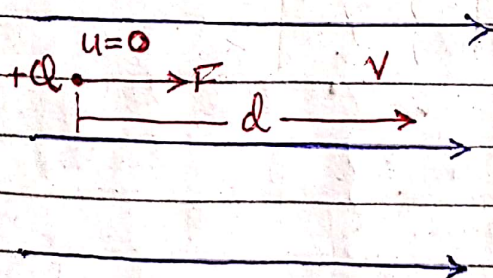 u=0
+Q F V
d